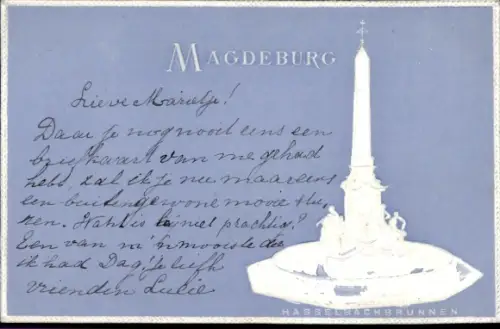 MAGDEBURG
Lieve Marietje!
Daar je nog nooit eens een
briefkaart van me gehad
hebt, zal ik je nu maar eens
een buitengewone mooie stu
ren. Is niet prachtig?
Een van m'n mooiste die
ik had Dag! je liefh
vriendin Lucie
HASSELBACHBRUNNEN